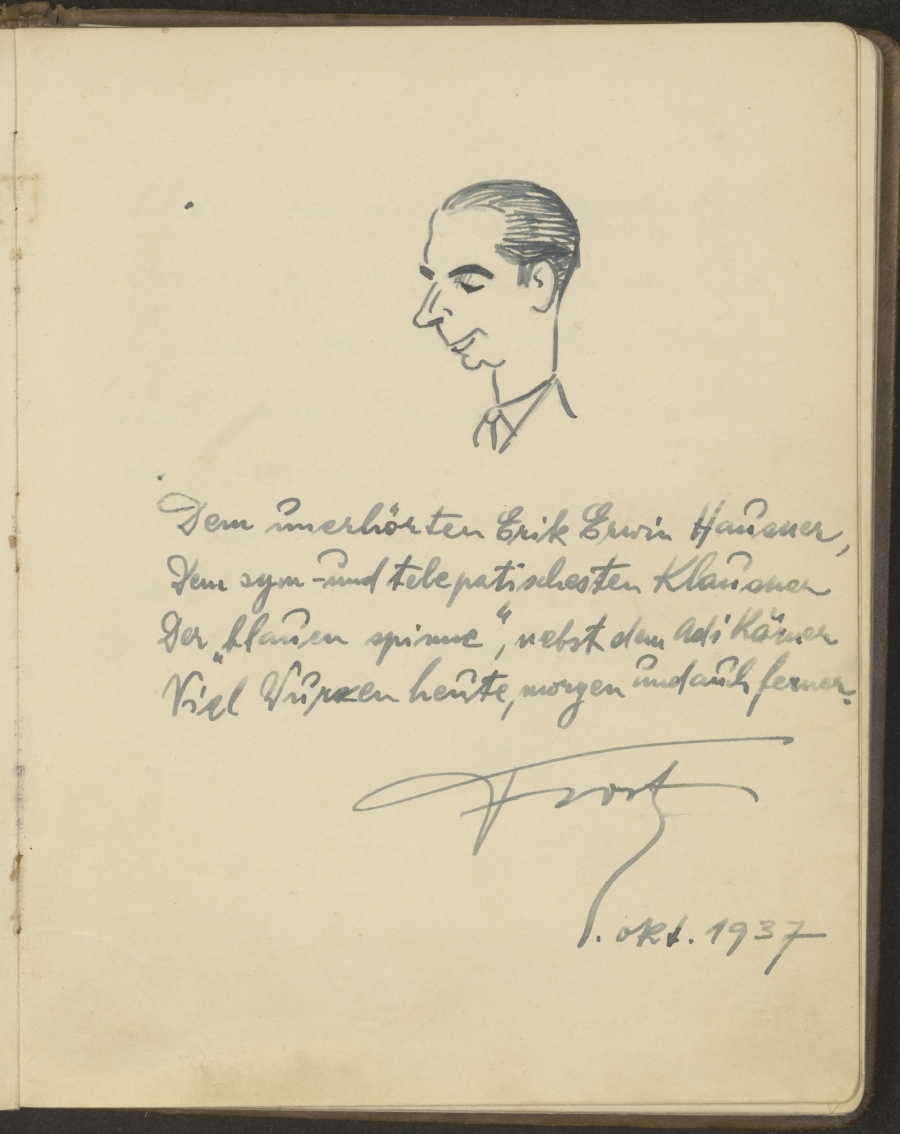 Dem unerhörten Erik Erwin Hausner,
Dem sym-und telepatischesten Klausner
Der „blauen spinne“, nebst dem Adi Kärner
Viel Wurzen heute, morgen und auch ferner.
Frost
1. okt. 1937